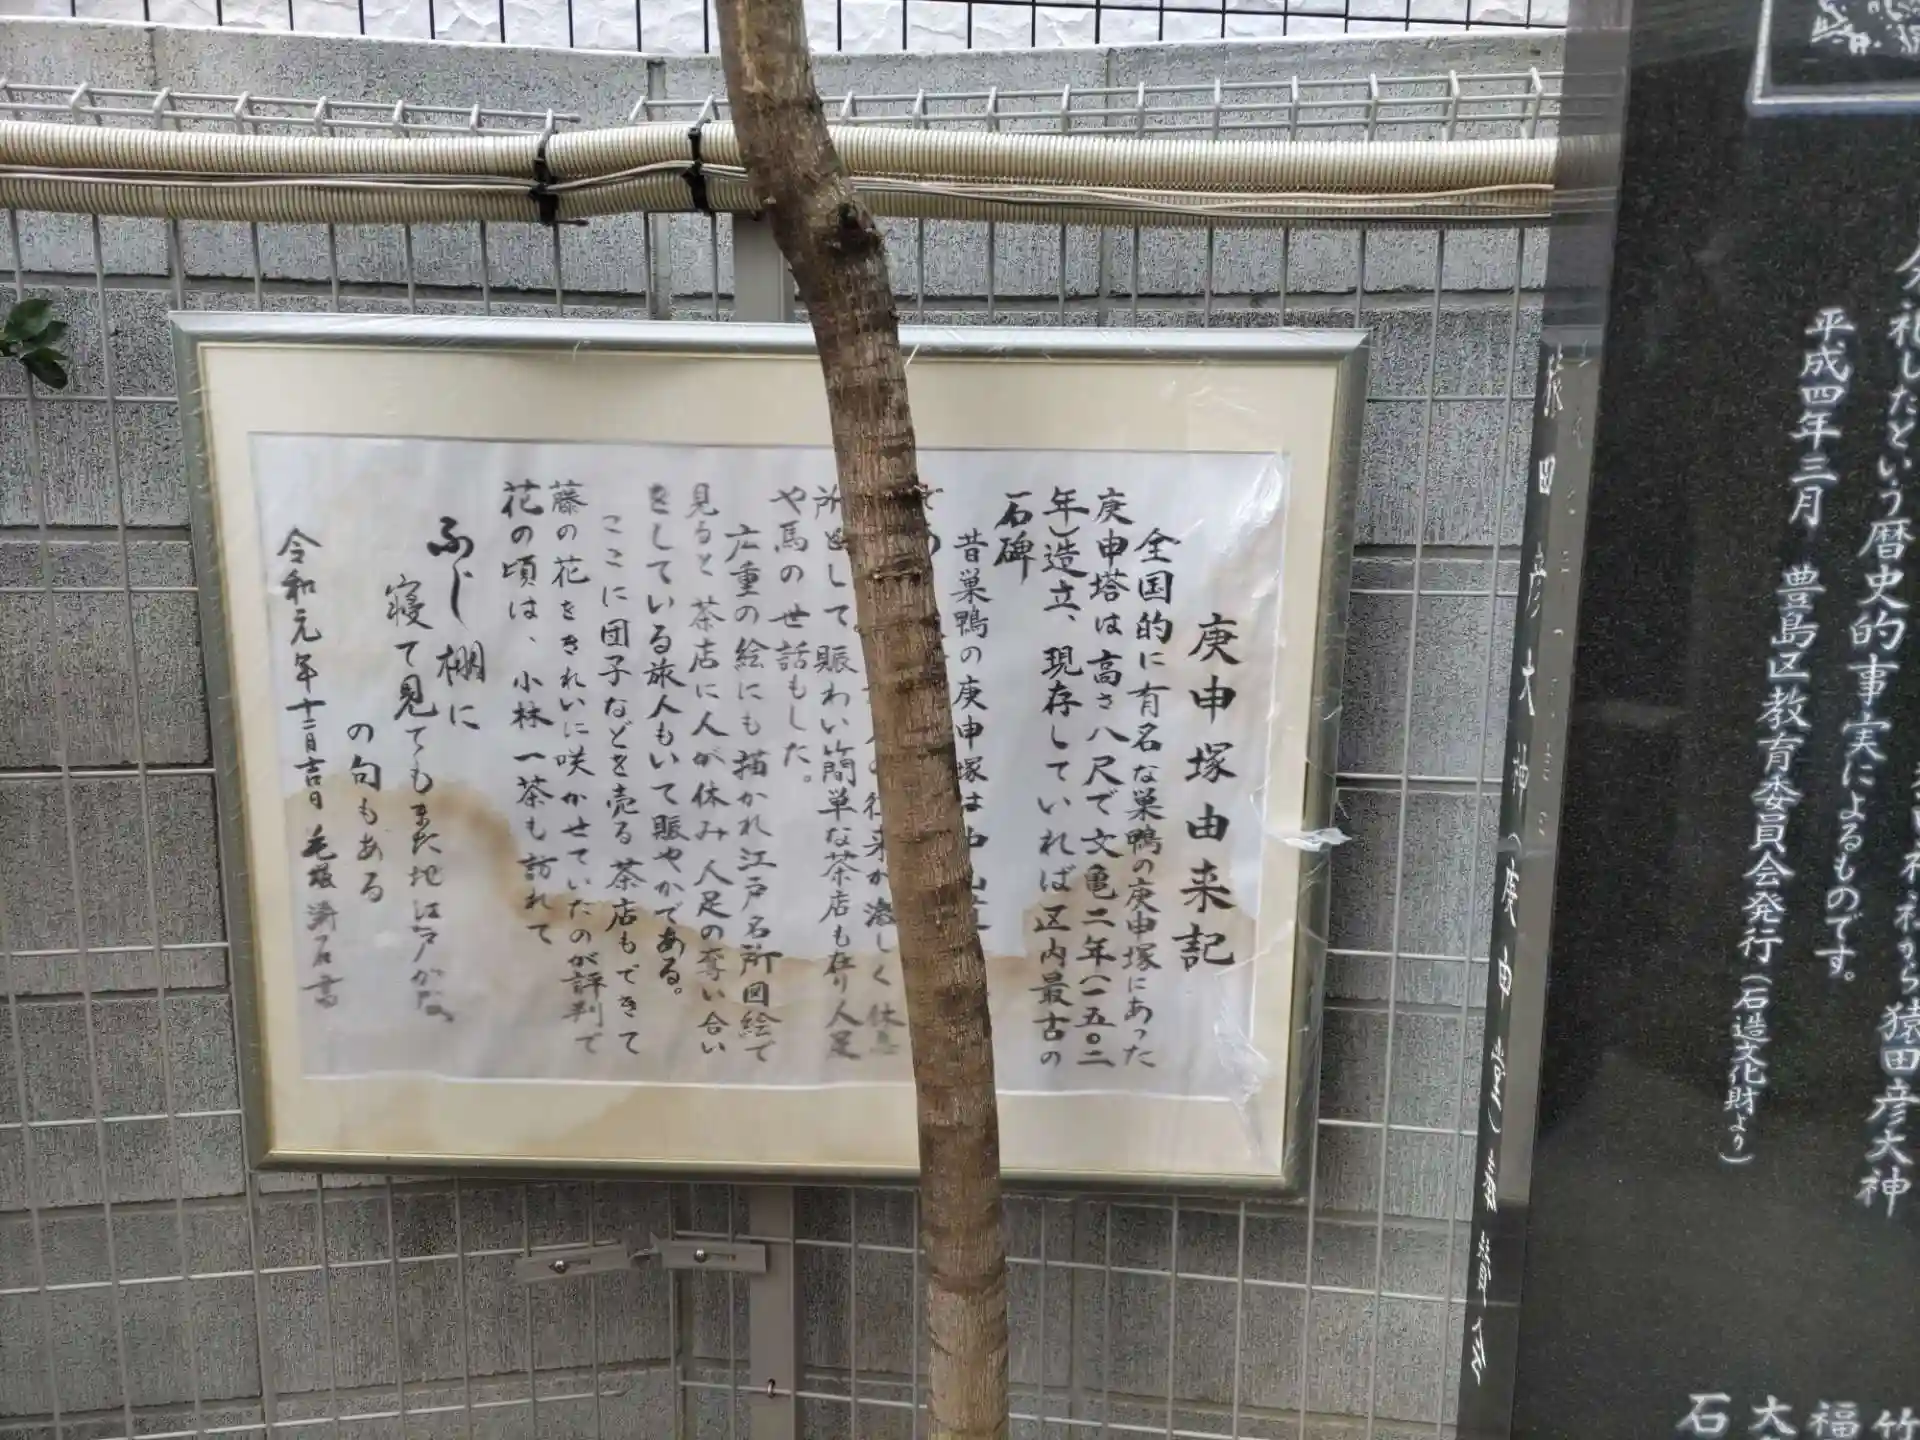 今
祀したという歴史的事実によるものです。
神社から猿田彦大神
平成四年三月　豊島区教育委員会発行（石造文化財より）
石
大
福
竹
庚申塚由来記
全国的に有名な巣鴨の庚申塚にあった
庚申塔は高さ八尺で文亀二年（一五〇二
年）造立、現存していれば区内最古の
石碑
昔巣鴨の庚申塚は中山道
往来が激しく休息
所として賑わい簡単な茶店も在り人足
や馬の世話もした。
広重の絵にも描かれ江戸名所図絵で
見ると茶店に人が休み人足の奪い合い
をしている旅人もいて賑やかである。
ここに団子などを売る茶店もできて
藤の花をきれいに咲かせていたのが評判で
花の頃は、小林一茶も訪れて
ふじ棚に
寝て見てもまた地江戸かな
の句もある
令和元年十二月吉日